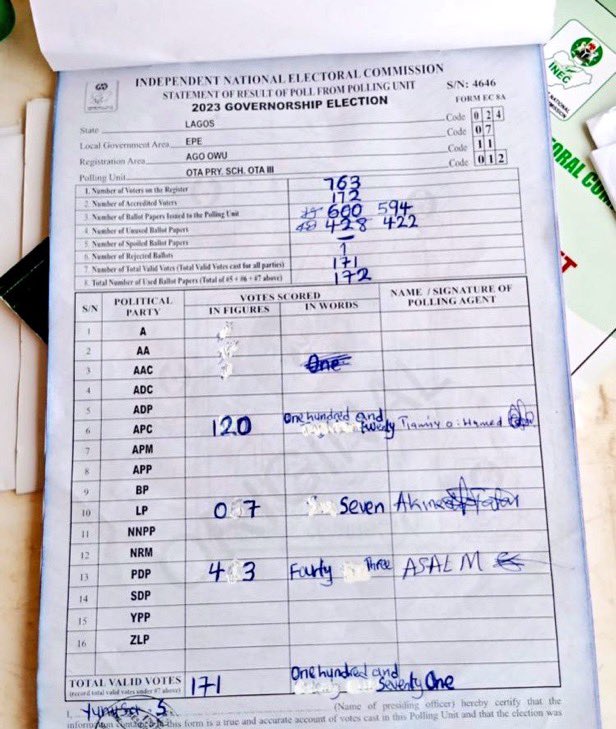 INDEPENDENT NATIONAL ELECTORAL COMMISSION
STATEMENT OF RESULT OF POLL FROM POLLING UNIT S/N: 4646
2023 GOVERNORSHIP ELECTION FORM EC 8A
State LAGOS Code 024
Local Government Area EPE Code 07
Registration Area AGO OWU Code 11
Polling Unit OTA PRY. SCH. OTA III Code 012
1. Number of Voters on the Register 763
2. Number of Accredited Voters 172
3. Number of Ballot Papers Issued to the Polling Unit 600 594
4. Number of Unused Ballot Papers 428 422
5. Number of Spoiled Ballot Papers –
6. Number of Rejected Ballots 1
7. Number of Total Valid Votes (Total Valid Votes cast for all parties) 171
8. Total Number of Used Ballot Papers (Total of #5 + #6 + #7 above) 172
S/N POLITICAL PARTY VOTES SCORED NAME / SIGNATURE OF POLLING AGENT
IN FIGURES IN WORDS
1 A
2 AA
3 AAC One
4 ADC
5 ADP
6 APC 120 One hundred and twenty
7 APM
8 APP
9 BP
10 LP 0 7 Seven
11 NNPP
12 NRM
13 PDP 4 3 Fourty Three ASALM
14 SDP
15 YPP
16 ZLP
TOTAL VALID VOTES 171 One hundred and
(record total valid votes under #7 above) Seventy One
I, (Name of presiding officer) hereby certify that the
information contained in this form is a true and accurate account of votes cast in this Polling Unit and that the election was
INEC